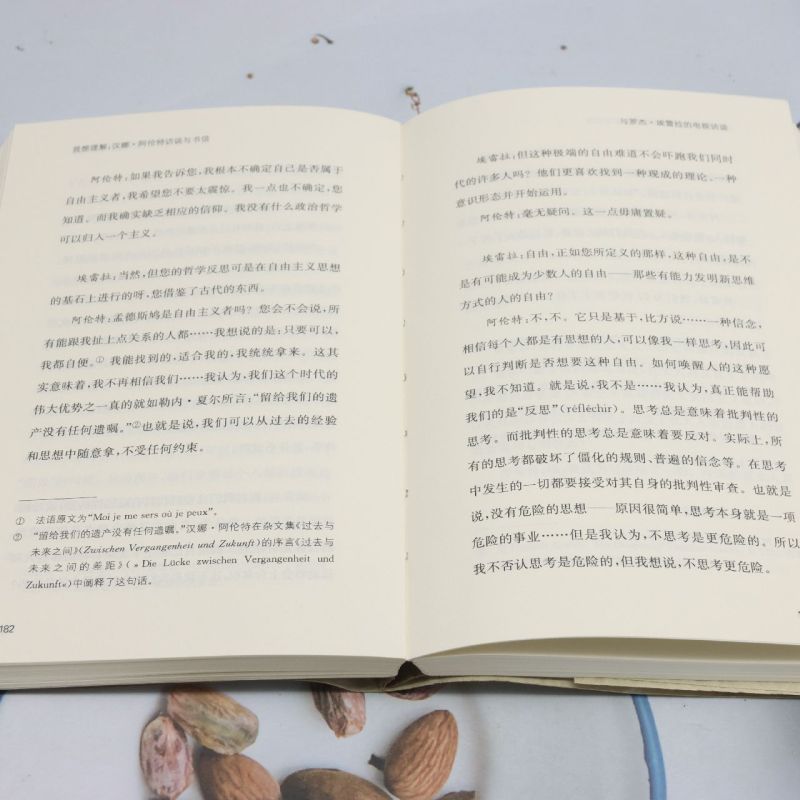 我想理解:汉娜·阿伦特访谈与书信
阿伦特:如果我告诉您,我根本不确定自己是否属于
自由主义者,我希望您不要太震惊。我一点也不确定,您
知道。而我确实缺乏相应的信仰。我没有什么政治哲学
可以归入一个主义。
埃雷拉:当然,但您的哲学反思可是在自由主义思想
的基石上进行的呀,您借鉴了古代的东西。
阿伦特:孟德斯鸠是自由主义者吗?您会不会说,所
有能跟我扯上点关系的人都……我想说的是:只要可以,
我都自便。①我能找到的,适合我的,我统统拿来。这其
实意味着,我不再相信我们……我认为,我们这个时代的
伟大优势之一真的就如勒内·夏尔所言:“留给我们的遗
产没有任何遗嘱。”②也就是说,我们可以从过去的经验
和思想中随意拿,不受任何约束。
① 法语原文为“Moi je me sers où je peux”。
② “留给我们的遗产没有任何遗嘱。”汉娜·阿伦特在杂文集《过去与
未来之间》(Zwischen Vergangenheit und Zukunft)的序言《过去与
未来之间的差距》(»Die Lücke zwischen Vergangenheit und
Zukunft«)中阐释了这句话。
182
与罗杰·埃雷拉的电视访谈
埃雷拉:但这种极端的自由难道不会吓跑我们同时
代的许多人吗?他们更喜欢找到一种现成的理论、一种
意识形态并开始运用。
阿伦特:毫无疑问。这一点毋庸置疑。
埃雷拉:自由,正如您所定义的那样,这种自由,是不
是有可能成为少数人的自由——那些有能力发明新思维
方式的人的自由?
阿伦特:不,不。它只是基于,比方说……一种信念,
相信每个人都是有思想的人,可以像我一样思考,因此可
以自行判断是否想要这种自由。如何唤醒人的这种愿
望,我不知道。就是说,我不是……我认为,真正能帮助
我们的是“反思”(réfléchir)。思考总是意味着批判性的
思考。而批判性的思考总是意味着要反对。实际上,所
有的思考都破坏了僵化的规则、普遍的信念等。在思考
中发生的一切都要接受对其自身的批判性审查。也就是
说,没有危险的思想——原因很简单,思考本身就是一项
危险的事业……但是我认为,不思考是更危险的。所以
我不否认思考是危险的,但我想说,不思考更危险。